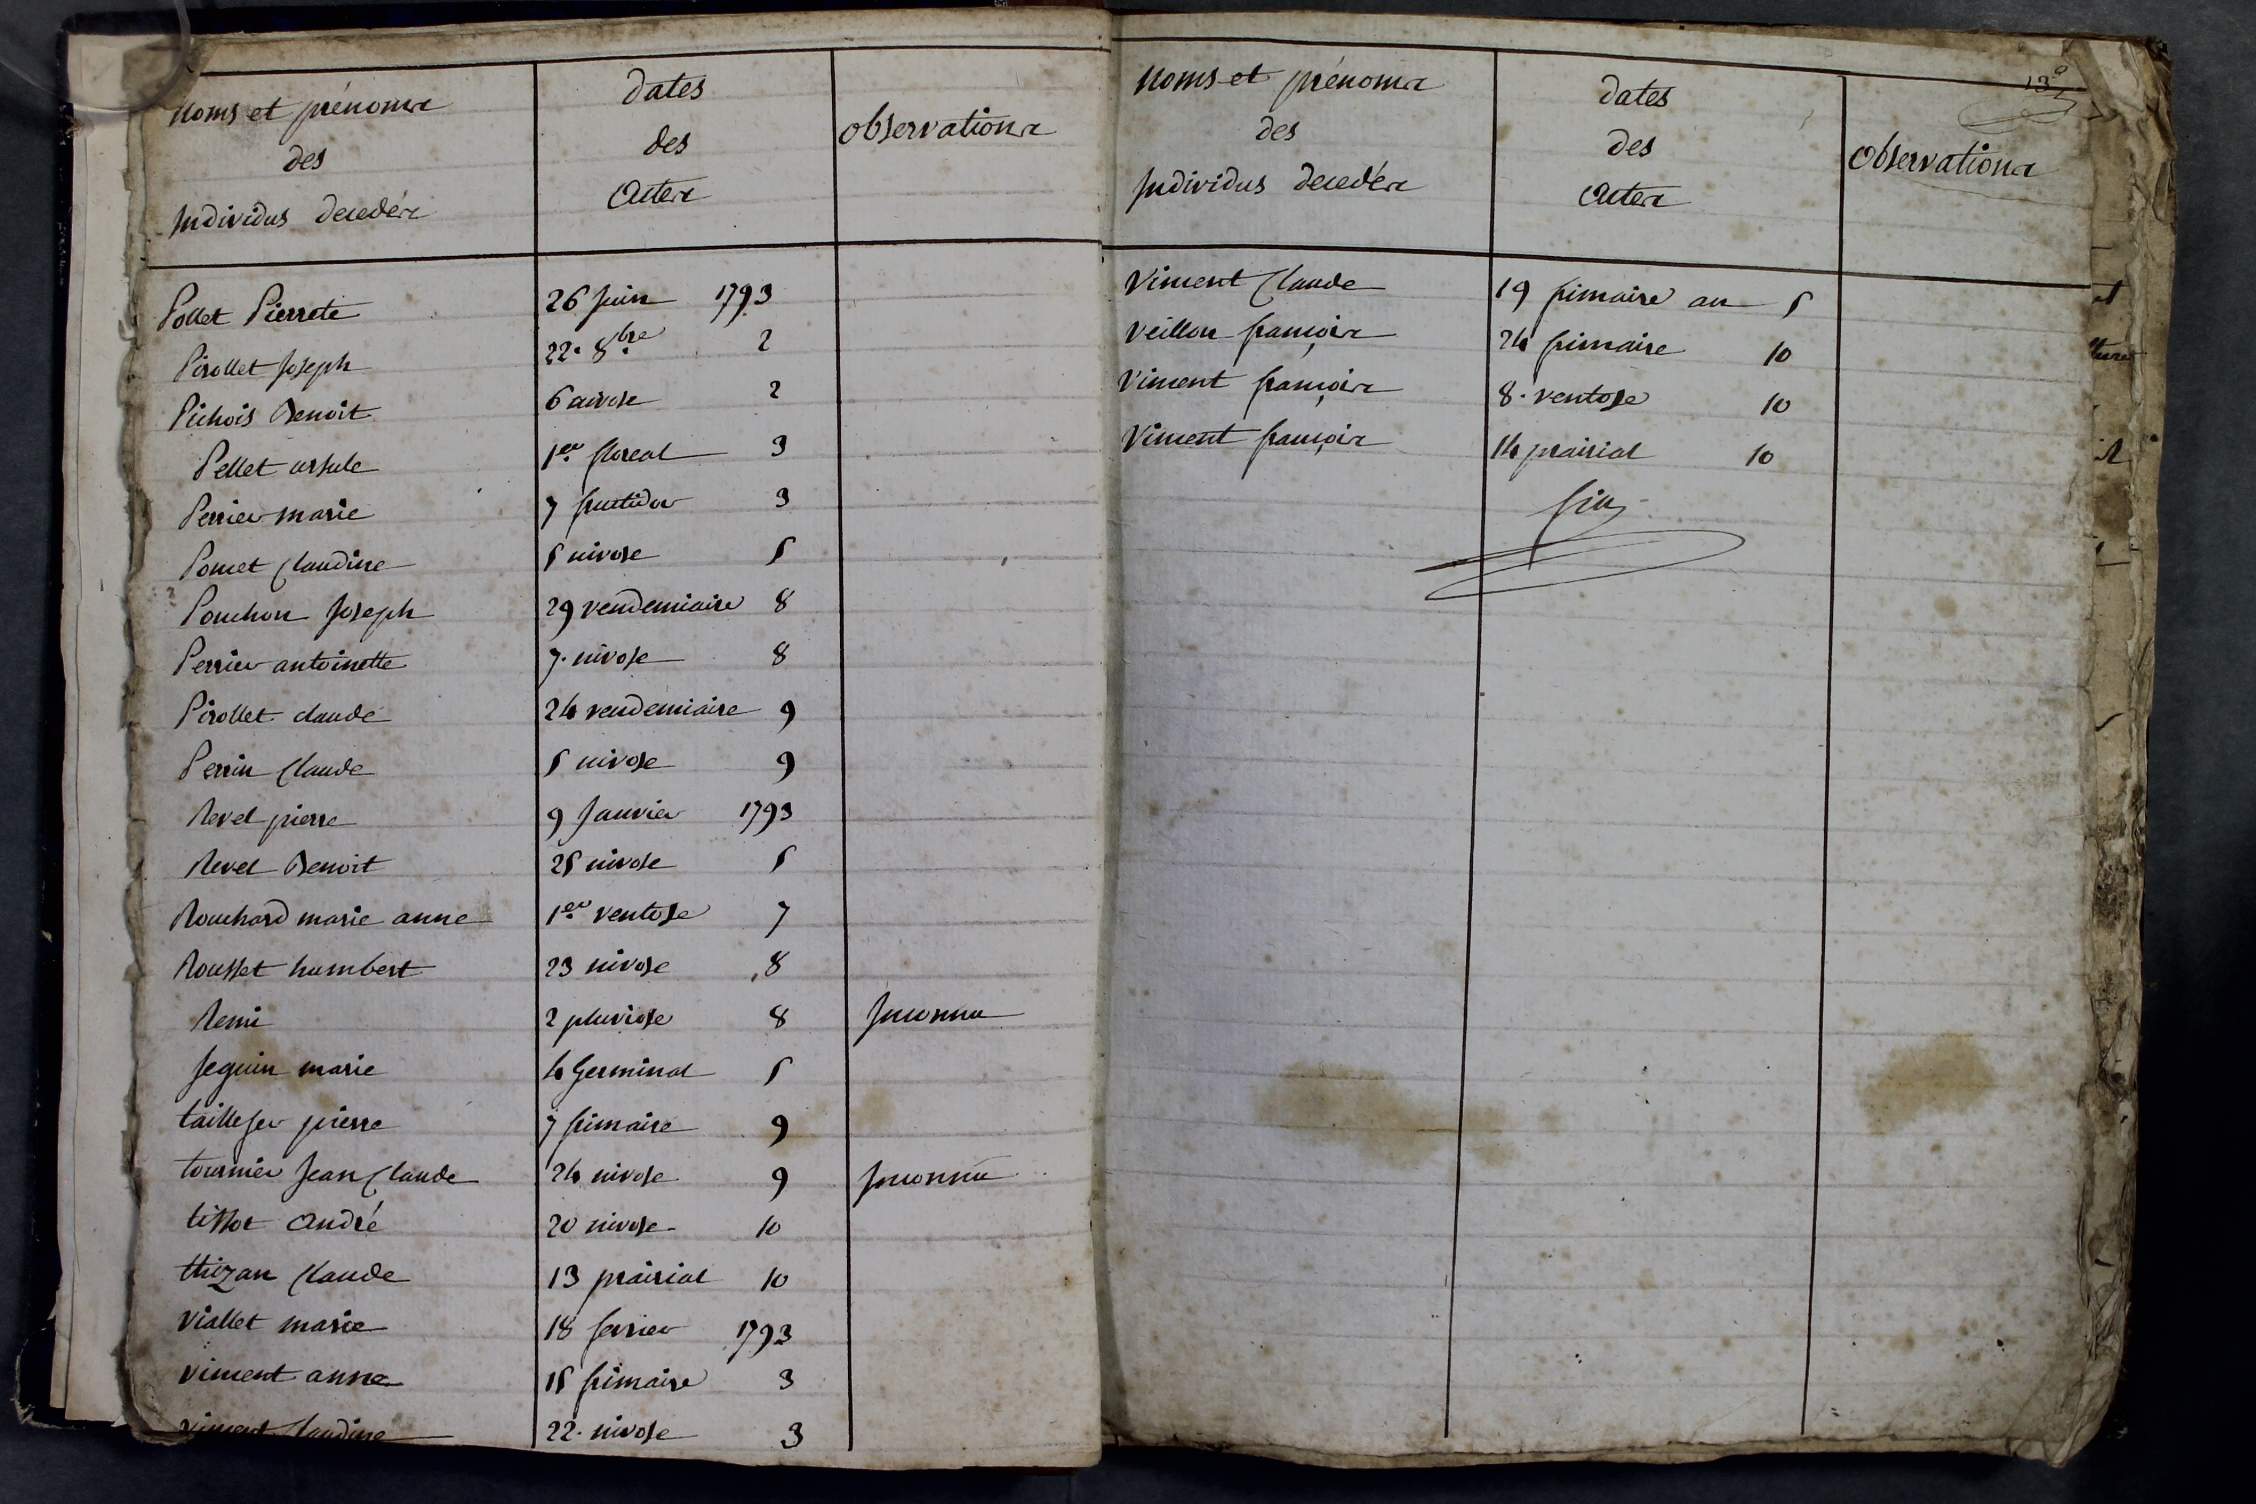 Noms et prénoms
des
Individus decedés
dates
des
Actes
observations
Pollet Pierrete 26 Juin 1793
Pirollet Joseph 22. 8.bre 2
Pichois Benoit 6 nivose 2
Pellet ursule 1.er floreal 3
Perrier marie 7 fructidor 3
Pomet Claudine 5 nivose 5
Pouchon Joseph 29 vendemiaire 8
Perrier antoinette 7. nivose 8
Pirollet claude 24 vendemiaire 9
Perrin Claude 5 nivose 9
Revel pierre 9 Janvier 1793
Revel Benoit 25 nivose 5
Rouchard marie anne 1.er ventose 7
Rousset humbert 23 nivose 8
Remi 2 pluviose 8 Inconnu
Seguin marie 4 Germinal 5
taillefer pierre 7 frimaire 9
tournier Jean Claude 24 nivose 9 Inconnu
tissot André 20 nivose 10
thizan Claude 13 prairial 10
Viallet marie 18 fevrier 1793
viment anne 15 frimaire 3
viment Claudine 22. nivose 3
Noms et prénoms
des
Individus decedés
dates
des
Actes
Observations
13e
Viment Claude 19 frimaire an 5
Veillon françois 24 frimaire 10
Viment françois 8. ventose 10
Viment françois 14 prairial 10
fin